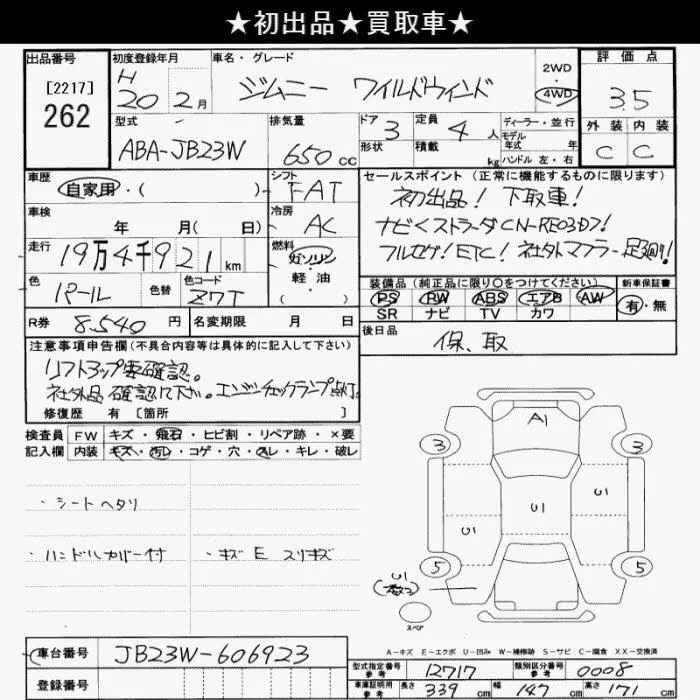 ★初出品★買取車★
出品番号
[2217]
262
初度登録年月
H
20 2月
車名・グレード
ジムニー ワイルドウィンド
2WD
・
4WD
評価点
3.5
型式
ABA-JB23W
排気量
650cc
ドア
3
形状
定員
4人
積載
kg
ディーラー・並行
モデル
年式 年
ハンドル 左・右
外装 内装
C C
車歴
自家用・( )
シフト
FAT
車検
年 月( 日)
冷房
AC
走行
19万4千921km
燃料
ガソリン
・
軽油
( )
色
パール
色替
色コード
Z7T
R券
8,540円
名変期限 月 日
セールスポイント(正常に機能するものに限ります)
初出品!下取車!
ナビくストラーダCN-RE03D7!
フルセグ!ETC!社外マフラー・足廻り!
装備品(純正品に限り○をつけてください)
PS PW ABS エアB AW
SR ナビ TV カワ
新車保証書
有・無
後日品
保、取
注意事項申告欄(不具合内容等は具体的に記入して下さい)
リフトアップ要確認。
社外品確認して下さい。エンジンチェックランプ点灯。
修復歴 有 [箇所 ]
検査員
記入欄
FW キズ・飛石・ヒビ割・リペア跡・×要
内装 キズ・汚レ・コゲ・穴・スレ・キレ・破レ
・シートヘタリ
・ハンドルカバー付 ・キズ E スリキズ
A1
3 3
U1
U1 U1
5 5
U1
スペア
A-キズ E-エクボ U-凹み W-補修跡 S-サビ C-腐食 XX-交換済
車台番号
JB23W-606923
登録番号
型式指定番号
参考
12717
類別区分番号
参考
0008
車庫証明用
参考
長さ 339cm 幅 147cm 高さ 171cm